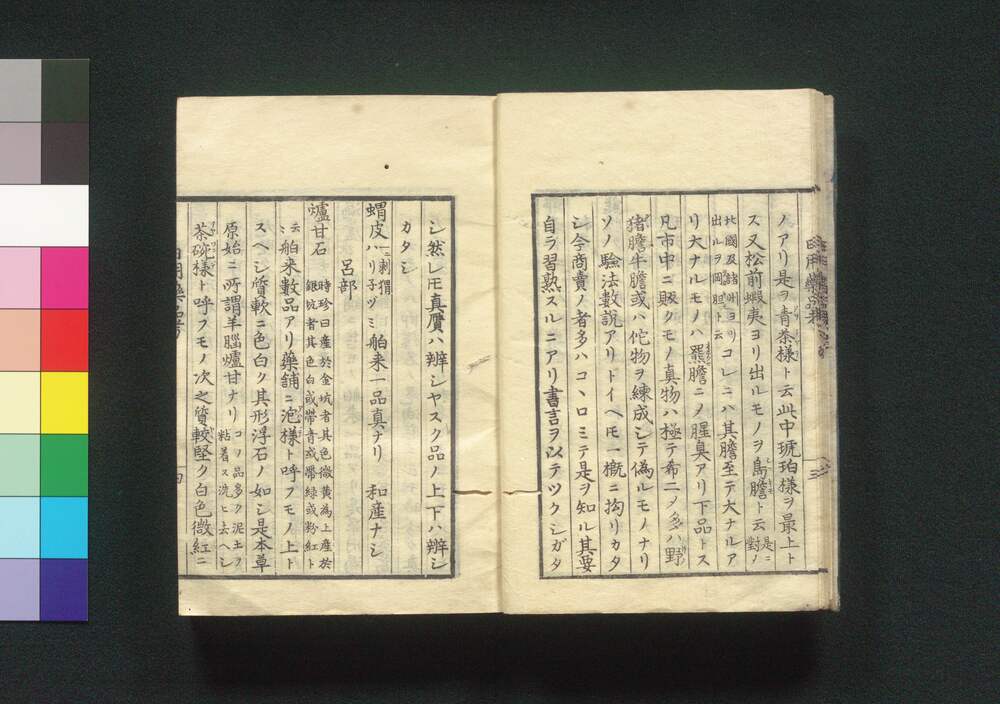 ノアリ是ヲ青茶様ト云此中琥珀様ヲ最上ト
ス又松前蝦夷ヨリ出ルモノヲ島膽ト云是ニ對ノ
北國及諸州ヨリ出ルヲ岡胆ト云コレニハ其膽至テ大ナルア
リ大ナルモノハ羆膽ニノ腥臭アリ下品トス
凡市中ニ販クモノ真物ハ極テ希ニノ多ハ野
猪膽牛膽或ハ佗物ヲ練成シテ偽ルモノナリ
ソノ驗法數説アリトイヘモ一概ニ拘リカタ
シ今商賣ノ者多ハコヽロミテ是ヲ知ル其要
自ラ習熟スルニアリ書言ヲ以テツクシガタ
シ然レモ真贋ハ辨シヤスク品ノ上下ハ辨シ
カタシ
蝟皮ハ一ニ刺猬ハリ子ヅミ舶来一品真ナリ 和産ナシ
呂部
爐甘石 時珍曰産於金坑者其色微黄為上産於銀坑者其色白或帶青或帶緑或粉紅ト
云々舶来數品アリ藥舗ニ泡様ト呼フモノ上ト
スヘシ質軟ニ色白ク其形浮石ノ如シ是本草
原始ニ所謂羊腦爐甘ナリコノ品多ク泥土フ粘着ス洗ヒ去ヘシ
茶碗様ト呼フモノ次之質較堅ク白色微紅ニ